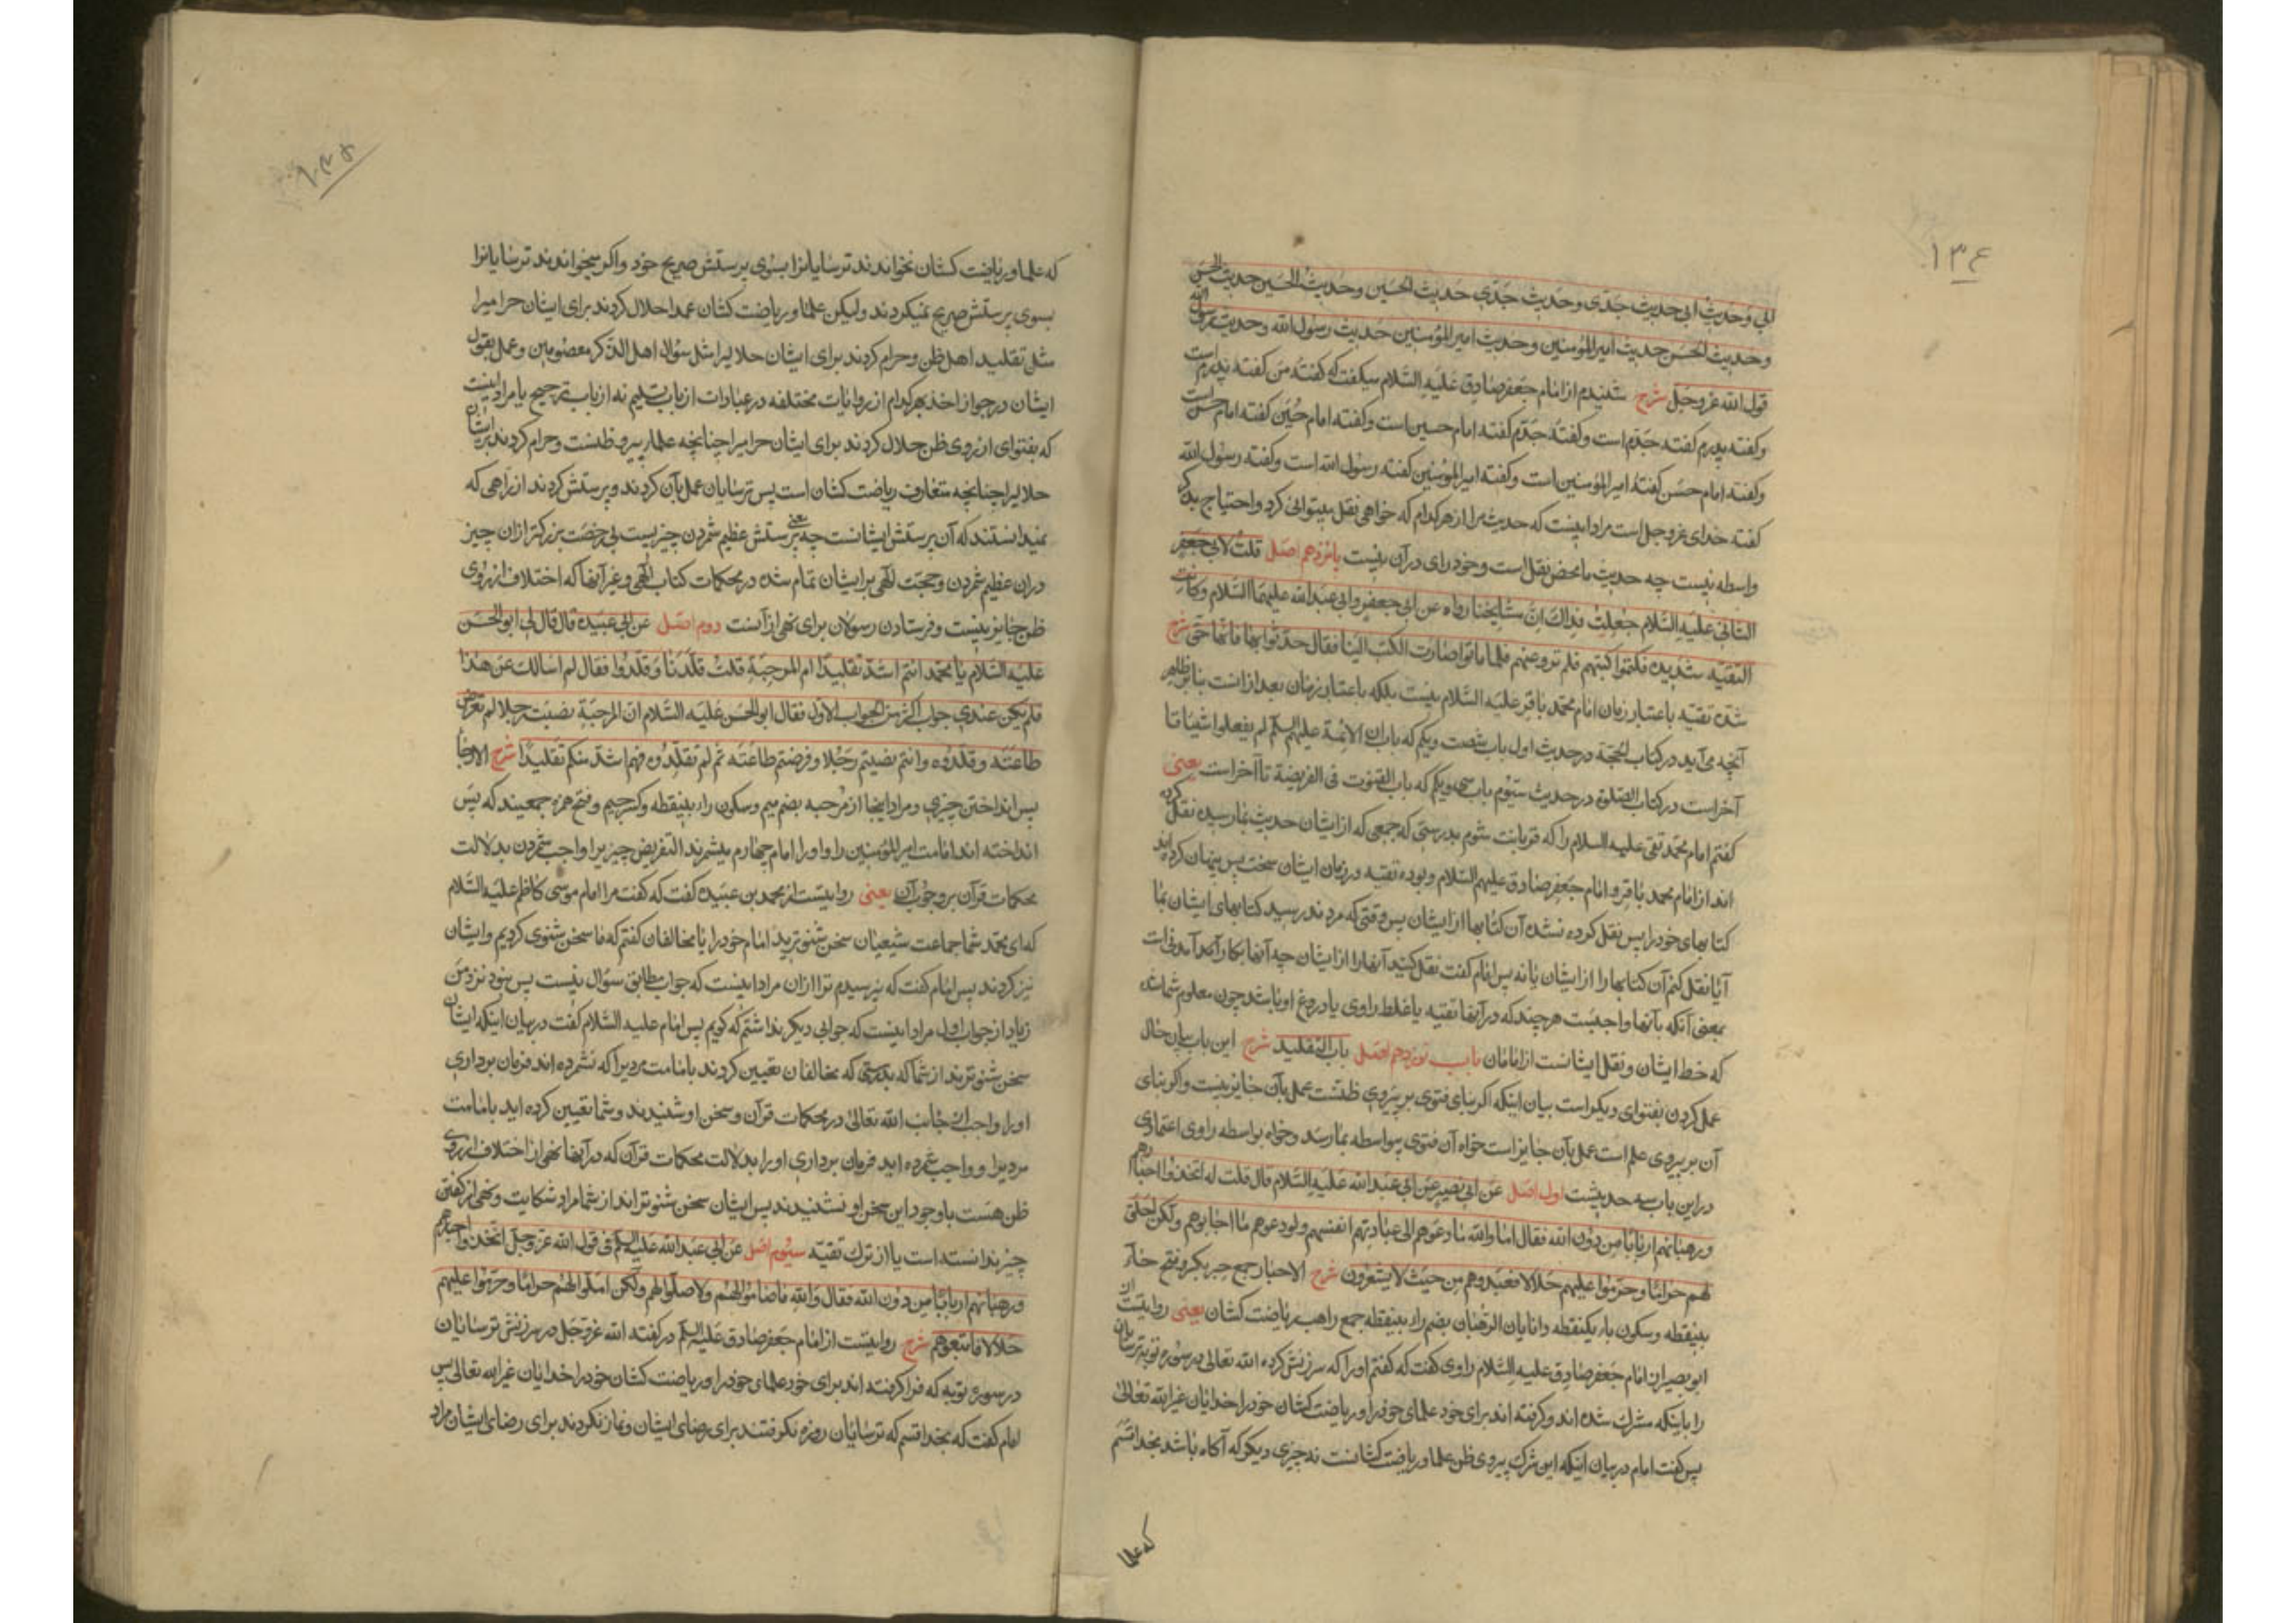 ۱۳۶
ابی وحدیث ابی حدیث جدی وحدیث جدی حدیث الحسین وحدیث الحسین حدیث الحسن
وحدیث الحسن حدیث امیرالمؤمنین وحدیث امیرالمؤمنین حدیث رسول الله وحدیث رسول الله
قول الله عزوجل شرح شنیدم از امام جعفر صادق علیه السلام میکفت که کفتهٔ من کفتهٔ پدرم است
وکفتهٔ پدرم کفتهٔ جدم است وکفتهٔ جدم کفتهٔ امام حسین است وکفتهٔ امام حسین کفتهٔ امام حسن است
وکفتهٔ امام حسن کفتهٔ امیرالمؤمنین است وکفتهٔ امیرالمؤمنین کفتهٔ رسول الله است وکفتهٔ رسول الله
کفتهٔ خدای عزوجل است مراد اینست که حدیث مرا از هرکدام که خواهی نقل میتوانی کرد واحتیاج بذکر
واسطه نیست چه حدیث ما محض نقل است وخودرای در آن نیست پانزدهم اصل قلت لابی جعفر
الثانی علیه السلام جعلت فداک ان مشایخنا رواه عن ابی جعفر وابی عبدالله علیهما السلام وکانت
التقیة شدیدة فکتموا کتبهم فلم ترو عنهم فلما ماتوا صارت الکتب الینا فقال حدثوا بها فانها حق شرح
شدة تقیه باعتبار زمان امام محمد باقر علیه السلام نیست بلکه باعتبار زمان بعد از انست بنابر ظاهر
آنچه می آید در کتاب الحجة در حدیث اول باب شصت ویکم که باب ان الائمة علیهم السلم لم یفعلوا شیئا تا
آخر است در کتاب الصلوة در حدیث سیوم باب سی ویکم که باب القنوت فی الفریضة تا آخر است یعنی
کفتم امام محمد تقی علیه السلام را که قربانت شوم بدرستی که جمعی که از ایشان حدیث بما رسیده نقل کرده
اند از امام محمد باقر وامام جعفر صادق علیهم السلام وبوده تقیه در زمان ایشان سخت پس پنهان کرده اند
کتابهای خود را پس نقل کرده نشده آن کتابها از ایشان پس وقتی که مردند رسید کتابهای ایشان بما
آیا نقل کنم آن کتابها را از ایشان یا نه پس امام کفت نقل کنید آنها را از ایشان چه آنها بکار آمد آمدنی است
بمعنی آنکه بآنها واجبست هرچند که در آنها تقیه یا غلط راوی یا دروغ او باشد چون معلوم شما شد
که خط ایشان ونقل ایشانست از امامان باب نوزدهم اصل باب التقلید شرح این باب بیان حال
عمل کردن بفتوای دیکر است بیان اینکه اکر بنای فتوی بر پیروی ظنست عمل بآن جایز نیست واکر بنای
آن بر پیروی علم است عمل بآن جایز است خواه آن فتوی بیواسطه بما رسد وخواه بواسطه راوی اعتمادی
در این باب سه حدیثست اول اصل عن ابی بصیر عن ابی عبدالله علیه السلام قال قلت له اتخذوا احبارهم
ورهبانهم اربابا من دون الله فقال اما والله ما دعوهم الی عبادة انفسهم ولو دعوهم ما اجابوهم ولکن احلوا
لهم حراما وحرموا علیهم حلالا فعبدوهم من حیث لا یشعرون شرح الاحبار جمع حبر بکسر وفتح حاء
بینقطه وسکون باء یکنقطه دانایان الرهبان بضم راء بینقطه جمع راهب ریاضت کشان یعنی روایتست از
ابو بصیر از امام جعفر صادق علیه السلام راوی کفت که کفتم او را که سرزنش کرده الله تعالی در سوره توبه ترسایان
را باینکه مشرک شده اند وکرفته اند برای خود علمای خود را وریاضت کشان خود را خدایان غیر الله تعالی
پس کفت امام در بیان اینکه این شرک پیروی ظن علما وریاضت کشانست نه چیزی دیکر که آکاه باشد بخدا قسم
که علما
که علما وریاضت کشان نخواندند ترسایانرا بسوی پرستش صریح خود واکر میخواندند ترسایانرا
بسوی پرستش صریح نمیکردند ولیکن علما وریاضت کشان عمدا حلال کردند برای ایشان حرامیرا
مثل تقلید اهل ظن وحرام کردند برای ایشان حلالیرا مثل سؤال اهل الذکر معصومین وعمل بقول
ایشان در جواز اخذ بهرکدام از روایات مختلفه در عبادات از باب تسلیم نه از باب ترجیح یا مراد اینست
که بفتوای از روی ظن حلال کردند برای ایشان حرامیرا چنانچه علما پیرو ظنست وحرام کردند بر ایشان
حلالیرا چنانچه متعارف ریاضت کشان است پس ترسایان عمل بآن کردند وپرستش کردند از راهی که
نمیدانستند که آن پرستش ایشانست چه معنی پرستش عظیم شمردن چیزیست بی رخصت بزرکتر ازان چیز
دران عظیم شمردن وحجت الهی بر ایشان تمام شده در محکمات کتاب الهی وغیر آنها که اختلاف از روی
ظن جایز نیست وفرستادن رسولان برای نهی از آنست دوم اصل عن ابی عبیده قال قال لی ابو الحسن
علیه السلام یا محمد انتم اشد تقلیدا ام المرجئة قلت قلدنا وقلدوا فقال لم اسالک عن هذا
فلم یکن عندی جواب اکثر من الجواب الاول فقال ابو الحسن علیه السلام ان المرجئة نصبت رجلا لم تفرض
طاعته وقلدوه وانتم نصبتم رجلا وفرضتم طاعته ثم لم تقلدوه فهم اشد منکم تقلیدا شرح الارجا
پس انداختن چیزی ومراد اینجا از مرجئه بضم میم وسکون راء بینقطه وکسر جیم وفتح همزه جمعیند که پس
انداخته اند امامت امیرالمؤمنین را واو را امام چهارم میشمرند التفریض چیزیرا واجب شمردن بدلالت
محکمات قرآن بر وجوب آن یعنی روایتست از محمد بن عبیده کفت که کفت مرا امام موسی کاظم علیه السلام
که ای محمد شما جماعت شیعیان سخن شنوترید امام خود را یا مخالفان کفتم که ما سخن شنوی کردیم وایشان
نیز کردند پس امام کفت که نپرسیدم ترا ازان مراد اینست که جواب مطابق سؤال نیست پس نبود نزد من
زیاد از جواب اول مراد اینست که جوابی دیکر نداشتم که کویم پس امام علیه السلام کفت در بیان اینکه ایشان
سخن شنوترند از شما که بدرستی که مخالفان تعیین کردند بامامت مردیرا که نشمرده اند فرمان برداری
او را واجب از جانب الله تعالی در محکمات قرآن وسخن او شنیدند وشما تعیین کرده اید بامامت
مردیرا وواجب شمرده اید فرمان برداری او را بدلالت محکمات قرآن که در آنها نهی از اختلاف از روی
ظن هست باوجود این سخن او نشنیدند پس ایشان سخن شنوتراند از شما مراد شکایت ونهی از کفتن
چیز ندانسته است یا از ترک تقیه سیوم اصل عن ابی عبدالله علیه السلم فی قول الله عزوجل اتخذوا احبارهم
ورهبانهم اربابا من دون الله فقال والله ما صاموا لهم ولا صلوا لهم ولکن احلوا لهم حراما وحرموا علیهم
حلالا فاتبعوهم شرح روایتست از امام جعفر صادق علیه السلم در کفته الله عزوجل در سرزنش ترسایان
در سوره توبه که فرا کرفته اند برای خود علمای خود را وریاضت کشان خود را خدایان غیر الله تعالی پس
امام کفت که بخدا قسم که ترسایان روزه نکرفتند برای رضای ایشان ونماز نکردند برای رضای ایشان مراد